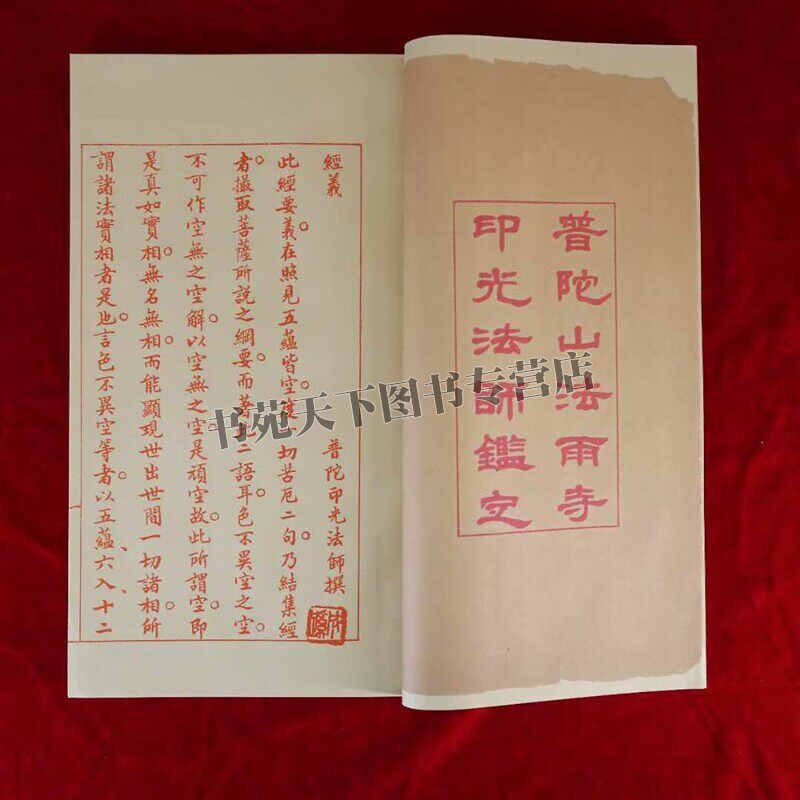 普陀山法雨寺
印光法師鑑定
經義 普陀印光法師撰
此經要義在照見五蘊皆空度一切苦厄二句。乃結集經
者撮取菩薩所說之綱要而著此二語耳。色不異空之空。
不可作空無之空解。以空無之空。是頑空故。此所謂空。即
是真如實相。無名無相。而能顯現世出世間一切諸相。所
謂諸法實相者是也。言色不異空等者。以五蘊、六入、十二
书苑天下图书专营店